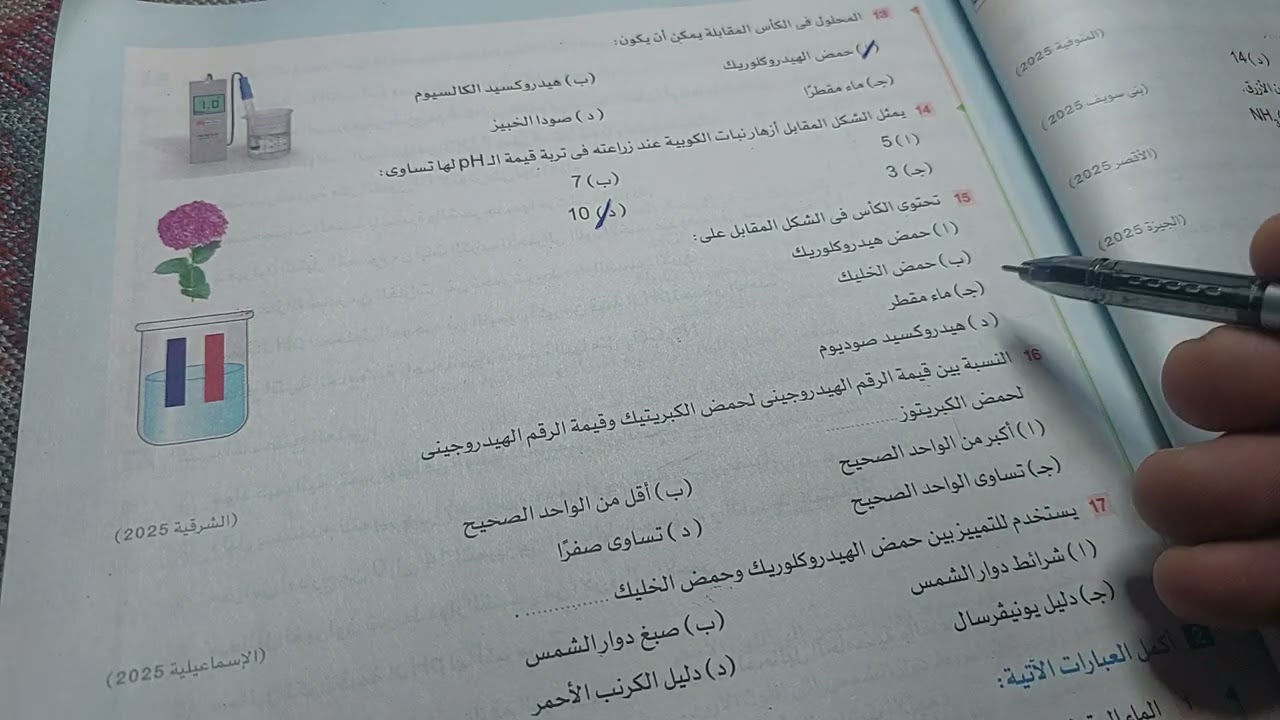 13 المحلول فى الكأس المقابلة يمكن أن يكون:
(أ) حمض الهيدروكلوريك
(ب) هيدروكسيد الكالسيوم
(جـ) ماء مقطرًا
(د) صودا الخبيز
1.0
14 يمثل الشكل المقابل أزهار نبات الكوبية عند زراعته فى تربة قيمة الـ pH لها تساوى:
(ا) 5
(ب) 7
(جـ) 3
(د) 10
15 تحتوى الكأس فى الشكل المقابل على:
(ا) حمض هيدروكلوريك
(ب) حمض الخليك
(جـ) ماء مقطر
(د) هيدروكسيد صوديوم
16 النسبة بين قيمة الرقم الهيدروجينى لحمض الكبريتيك وقيمة الرقم الهيدروجينى
لحمض الكبريتوز ..............
(ا) أكبر من الواحد الصحيح
(ب) أقل من الواحد الصحيح
(جـ) تساوى الواحد الصحيح
(د) تساوى صفرًا
(الشرقية 2025)
17 يستخدم للتمييز بين حمض الهيدروكلوريك وحمض الخليك .............. .
(ا) شرائط دوار الشمس
(ب) صبغ دوار الشمس
(جـ) دليل يونيڤرسال
(د) دليل الكرنب الأحمر
(الإسماعيلية 2025)
2 أكمل العبارات الآتية:
1 الماء
(المنوفية 2025)
(د) 14
(بنى سويف 2025)
الأزرق.
NH3
(الأقصر 2025)
(الجيزة 2025)